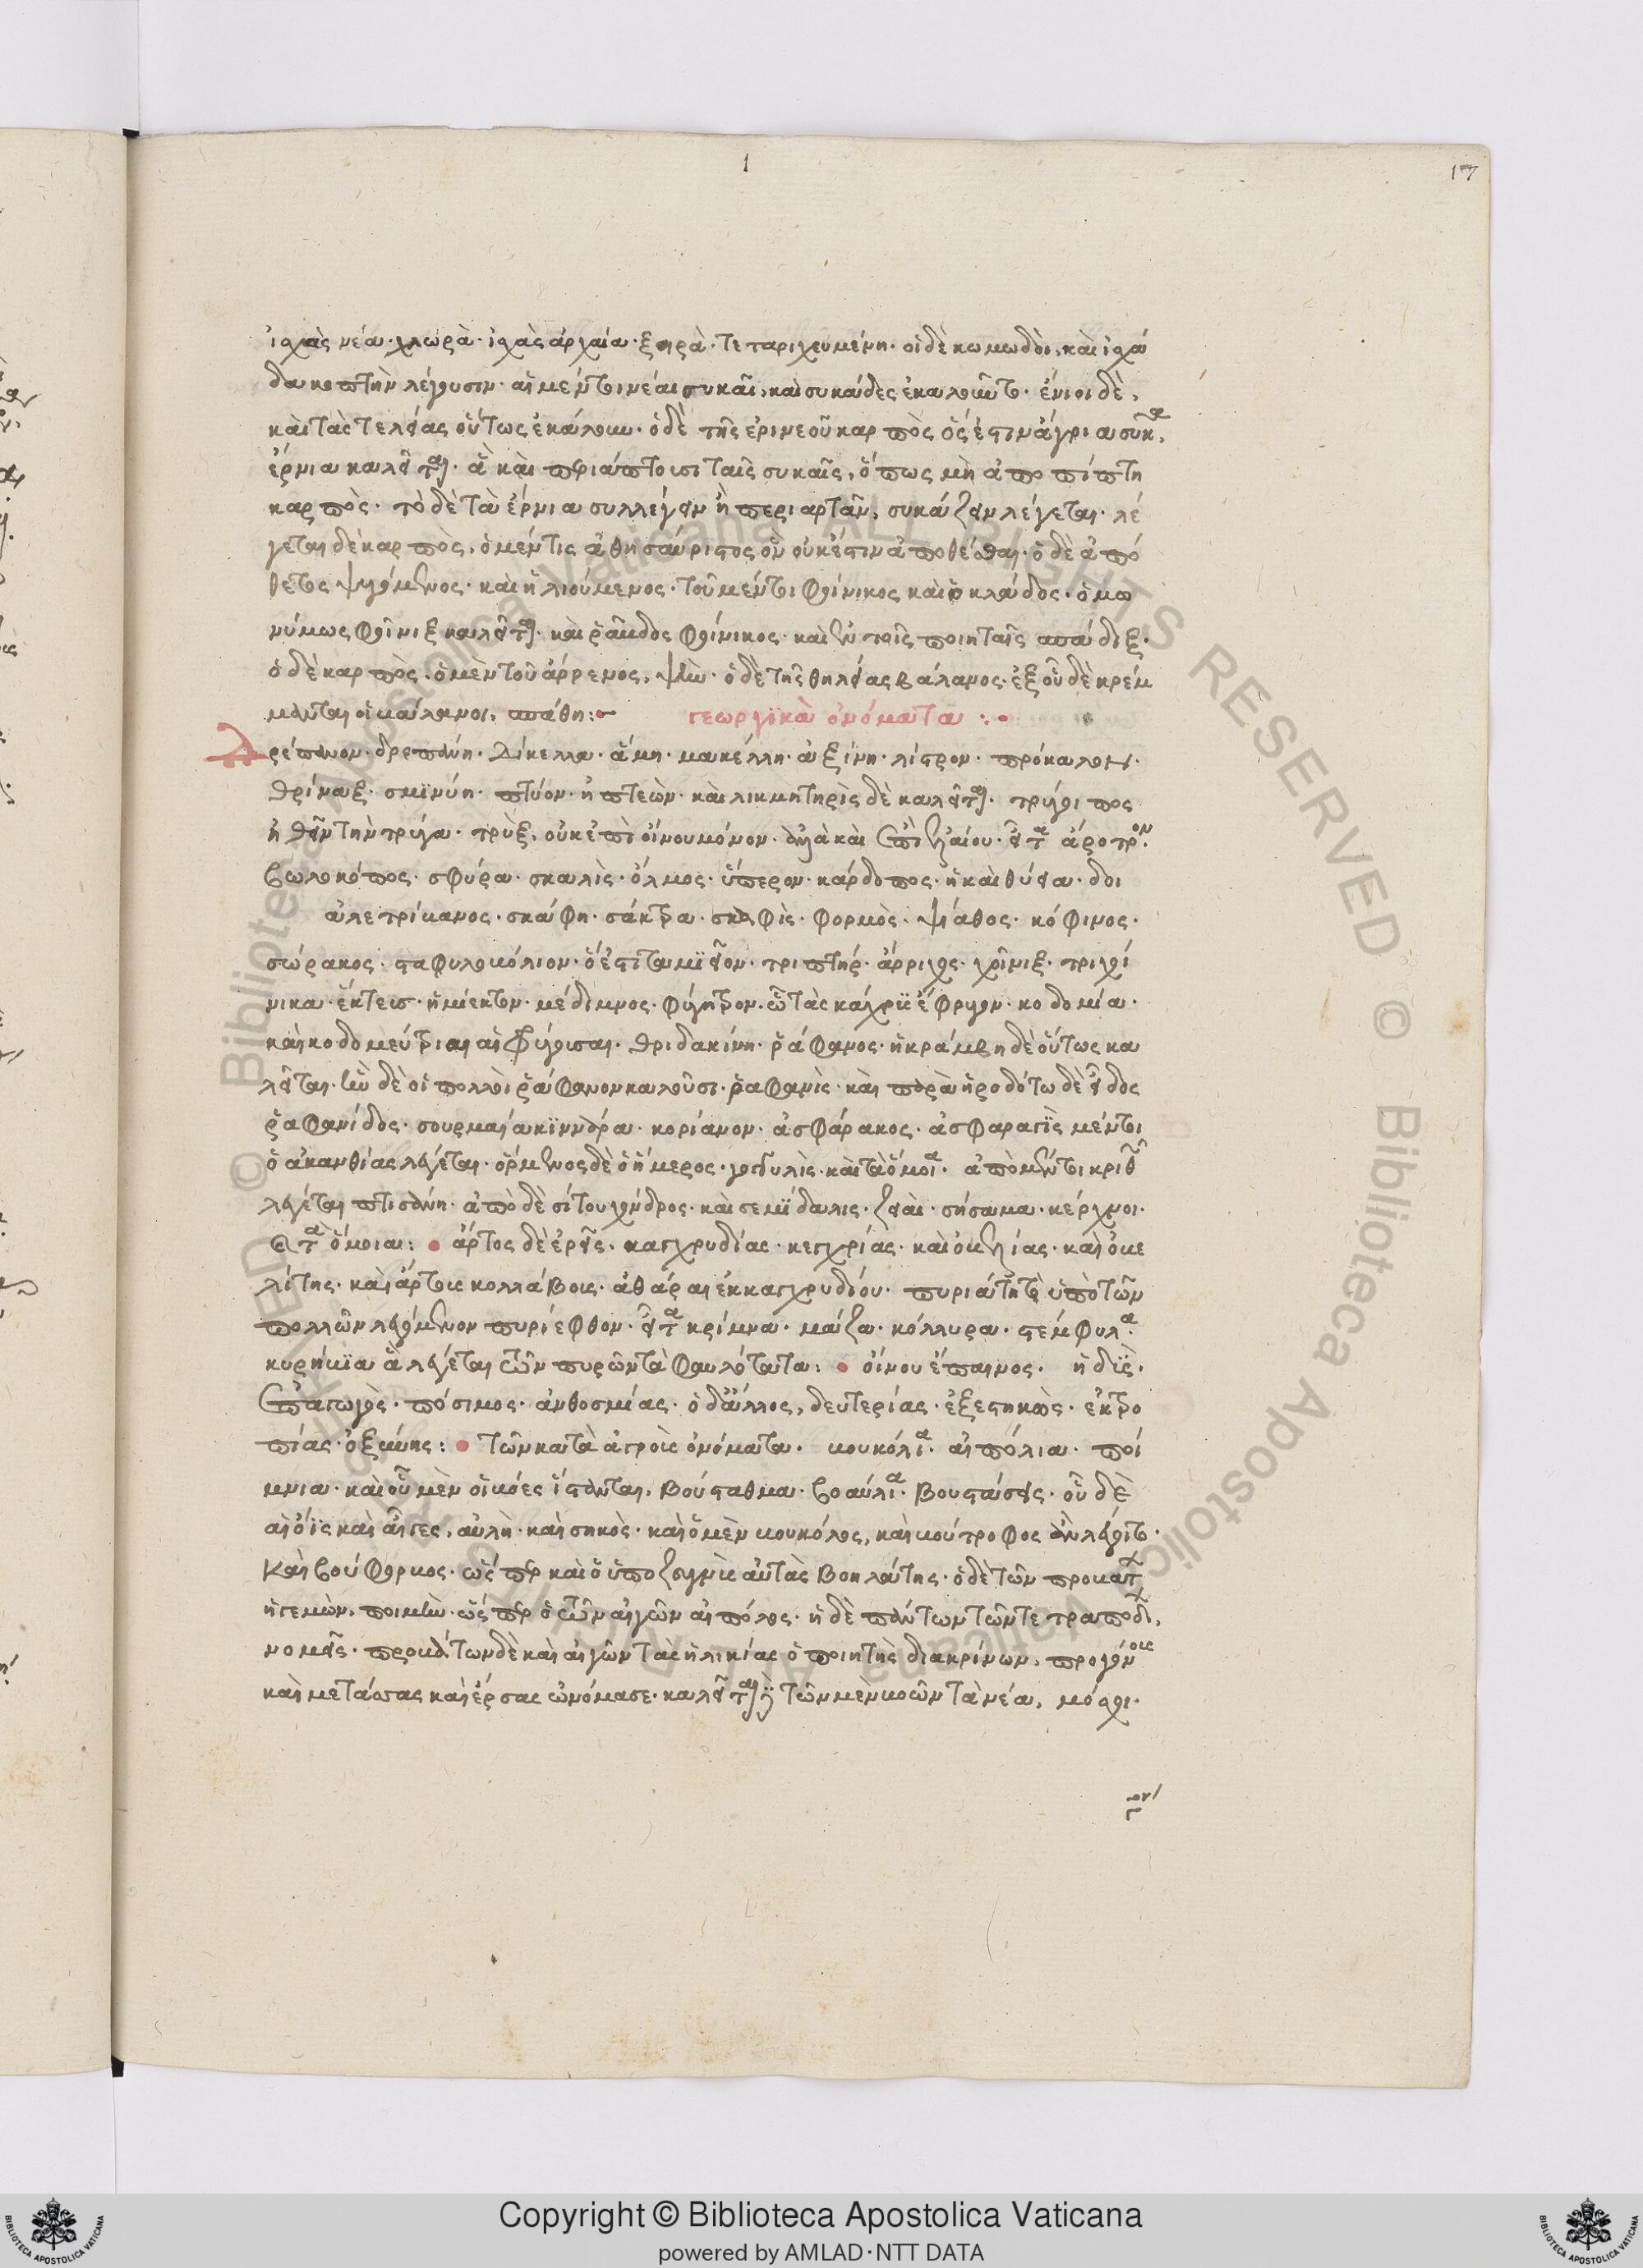 1
17
ἰσχὰς νέα· χλωρὰ· ἰσχὰς ἀρχαία· ξηρὰ· τεταριχευμένη· οἱ δὲ κωμωδοὶ, καὶ ἰσχά
δα κοπτὴν λέγουσιν· αἱ μέντοι νέαι συκαῖ, καὶ συκάδες ἐκαλοῦντο· ἔνιοι δὲ,
καὶ τὰς τελείας οὕτως ἐκάλουν· ὁ δὲ τῆς ἐρινεοῦ καρπὸς ὅς ἐστιν ἀγρία συκῆ,
ἐρινια καλεῖται· ἃ καὶ περιάπτουσι ταῖς συκαῖς, ὅπως μὴ ἀποπίπτη
καρπὸς· τὸ δὲ τὰ ἐρινια συλλέγειν ἢ περιαρτᾶν, συκάζειν λέγεται· λέ
γεται δὲ καρπὸς, ὁ μέν τις ἀθησαύριστος ὃν οὐκ ἔστιν ἀποθέσθαι· ὁ δὲ ἀπό
θετος ψυχόμενος· καὶ ἡλιούμενος· τοῦ μέντοι φοίνικος καὶ ὁ κλάδος· ὁμω
νύμως φοῖνιξ καλεῖται· καὶ ῥάβδος φοίνικος· καὶ ἐν τοῖς ποιηταῖς σπάδιξ·
ὁ δὲ καρπὸς, ὁ μὲν τοῦ ἄρρενος, ψὴν· ὁ δὲ τῆς θηλείας βάλανος· ἐξ οὗ δὲ κρέμ
μανται οἱ κάλαμοι, σπάθη:
γεωργϊκὰ ὀνόματα :
Δρέπανον· δρεπάνη· δίκελλα· ἄμη· μακέλλη· ἀξίνη· λίστρον· πρόκαλον·
θρίναξ· σμϊνύη· πτύον· ἢ πτεὼν· καὶ λικμητηρὶς δὲ καλεῖται· τρύγοιπος
ἢ θεῖν τὴν τρύγα· τρὺξ, οὐκ ἐπὶ οἴνου μόνον· ἀλλὰ καὶ ἐπὶ ἐλαίου· εἶτα ἄροτρον·
βωλοκόπος· σφύρα· σκαλὶς· ὅλμος· ὕπερον· κάρδοπος· ἢ καὶ θύεια· δοι
ἀλετρίβανος· σκάφη· σάκτρα· σκαφὶς· φορμὸς· ψίαθος· κόφινος·
σώρακος· σταφυλοκόλιον· ὅ ἐστι ταμϊεῖον· τριπτήρ· ἄρριχος· χοῖνιξ· τριχοί
νικα· ἕκτευς· ἡμίεκτον· μέδιμνος· φύγητρον· ὧ τὰς κάχρϋς ἔφρυγον· κοδομία·
καὶ κοδομεύτριαι αἱ φρύγουσαι· θριδακίνη· ῥάφανος· ἡ κράμβη δὲ οὕτως κα
λεῖται· ἣν δὲ οἱ πολλοὶ ῥάφανον καλοῦσι· ῥαφανὶς· καὶ παρὰ ἡροδότω δὲ εἶδος
ῥαφανίδος· συρμαία κϊννάρα· κορίανον· ἀσφάραγος· ἀσφαραγϊὰς μέντοι
ὁ ἀκανθίας λέγεται· ὄρμενος δὲ ὁ ἥμερος· γογγυλὶς· καὶ τὰ ὅμοια· ἀπὸ μέντοι κριθῆς
λέγεται πτισάνη· ἀπὸ δὲ σίτου χόνδρος· καὶ σεμίδαλις· ζειαὶ· σήσαμα· κέρχνοι·
καὶ τὰ ὅμοια: ἄρτος δὲ ἐρεῖς. καγχρυδίας· κεγχρίας· καὶ ὀβελίας· καὶ ὀβε
λίτης· καὶ ἄρτους κολλάβους· ἀθάραι ἐκ καγχρυδίου· πυριάτη τὸ ὑπὸ τῶν
πολλῶν λεγόμενον πυρίεφθον· εἶτα κρίμνα· μάζα· κόλλυρα· στέμφυλα·
κυρήβϊα ἃ λέγεται τῶν πυρῶν τὰ φαυλότατα: οἴνου ἔπαινος· ἡδϊὺς·
ἐπαγωγὸς· πόσιμος· ἀνθοσμίας· ὁ δ' ἄλλος, δευτερίας· ἐξεστηκὼς· ἐκτρο
πίας· ὀξίνης: τῶν κατὰ ἀγροὺς ὀνόματα. βουκόλια· αἰπόλια· ποί
μνια· καὶ οὗ μὲν οἱ βόες ἵστανται, βούσταθμα· βοαύλια· βουστάσεις· οὗ δὲ
αἱ ὄϊς καὶ αἶγες, αὐλὴ· καὶ σηκὸς· καὶ ὁ μὲν βουκόλος, καὶ βούτροφος ἂν λέγοιτο·
καὶ βουφορβος· ὥσπερ καὶ ὁ ὑποζυγνὺς αὐτὰς βοηλάτης· ὁ δὲ τῶν προβάτων
ἡγεμὼν, ποιμὴν· ὥσπερ ὁ τῶν αἰγῶν αἰπόλος· ἡ δὲ πάντων τῶν τετραπόδων,
νομεῖς· προβάτων δὲ καὶ αἰγῶν τὰς ἡλικίας ὁ ποιητὴς διακρίνων, προγόνους
καὶ μετάσσας καὶ ἔρσας ὠνόμασε· καλεῖται γὰρ τῶν μὲν βοῶν τὰ νέα, μόσχοι·
Copyright © Biblioteca Apostolica Vaticana
powered by AMLAD·NTT DATA